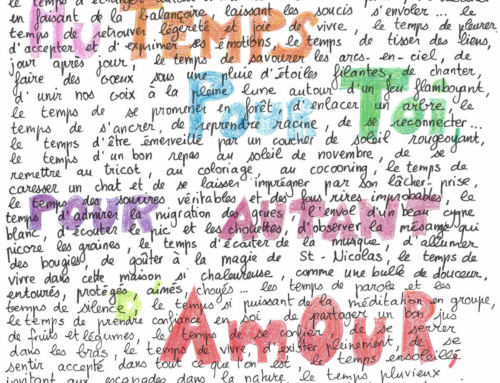 en faisant de la balançoire, laissant les soucis s'envoler ... le
DU TEMPS
temps de retrouver légèreté et joie de vivre, le temps de pleurer,
d'accepter et d'exprimer ses émotions, le temps de tisser des liens,
jour après jour, le temps de savourer les arcs-en-ciel, de
faire des vœux sous une pluie d'étoiles filantes, de chanter,
d'unir nos voix à la pleine lune autour d'un feu flamboyant,
Pour Toi,
le temps de se promener en forêt, d'enlacer un arbre, le
temps de s'ancrer, de reprendre racine, de se reconnecter...
le temps d'être émerveillé par un coucher de soleil rougeoyant,
le temps d'un bon repas au soleil de novembre, de se
remettre au tricot, au coloriage, au cocooning, le temps de
caresser un chat et de se laisser imprégner par son lâcher-prise,
le temps des sourires véritables et des fous rires improbables, le
POUR AUTANT
temps d'admirer la migration des grues, l'envol d'un beau cygne
blanc, d'écouter le pic et les chouettes, d'observer la mésange qui
picore les graines, le temps d'écouter de la musique, d'allumer
des bougies, de goûter à la magie de St-Nicolas, le temps de
vivre dans cette maison si chaleureuse, comme une bulle de douceur,
entourés, protégés, aimés, choyés ... les temps de parole et les
temps de silence, le temps si puissant de la méditation en groupe,
D'AMOUR,
le temps de prendre confiance en soi, de partager un bon jus
de fruits et légumes, le temps de se confier, de se serrer
dans les bras, le temps de vivre, d'exister pleinement, de se
sentir accepté dans tout ce que l'on est, le temps ensoleillé
invitant aux escapades dans la nature, le temps pluvieux